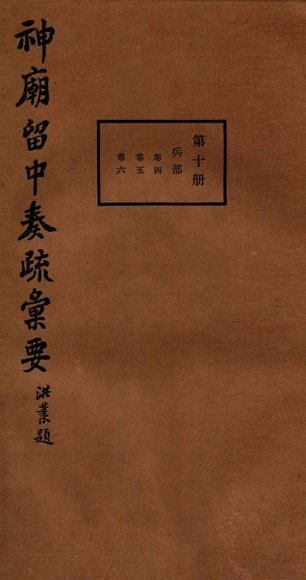 神廟留中奏疏彙要
洪業題
第十册
兵部
卷四
卷五
卷六